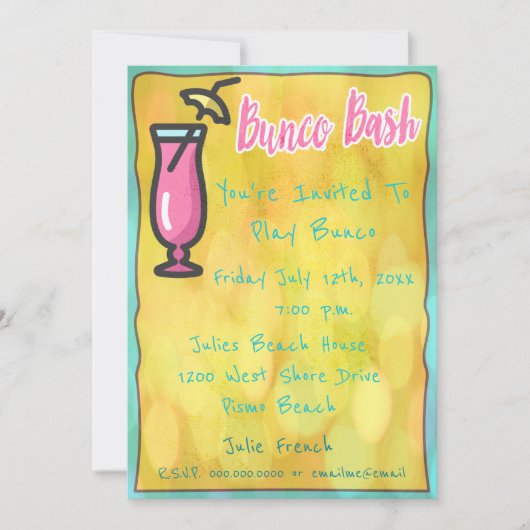 Bunco Bash
You're Invited To
Play Bunco
Friday July 12th, 20xx
7:00 p.m.
Julies Beach House
1200 West Shore Drive
Pismo Beach
Julie French
R.S.V.P. 000.000.0000 or emailme@email